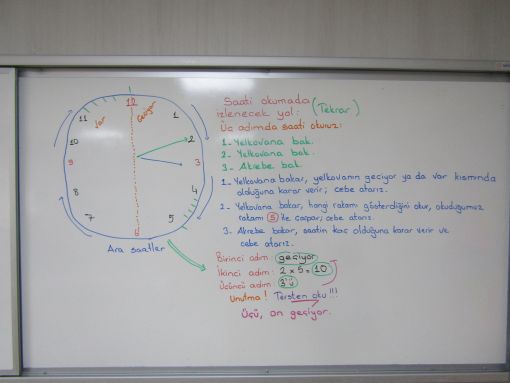 12
11
1
Var
Geçiyor
10
2
9
3
8
4
7
5
6
Ara saatler
Saati okumada
izlenecek yol: (Tekrar)
Üç adımda saati okuruz:
1- Yelkovana bak.
2- Yelkovana bak.
3- Akrebe bak.
1- Yelkovana bakar, yelkovanın geçiyor ya da var kısmında
olduğuna karar verir; cebe atarız.
2- Yelkovana bakar, hangi rakamı gösterdiğini okur, okuduğumuz
rakamı 5 ile çarpar; cebe atarız.
3. Akrebe bakar, saatin kaç olduğuna karar verir ve
cebe atarız.
Birinci adım: geçiyor
İkinci adım: 2 x 5 = 10
Üçüncü adım: 3'ü
Unutma! Tersten oku!!!
Üçü, on geçiyor.